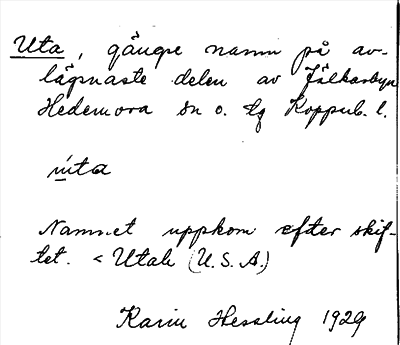 Uta, gängse namn på av-
lägsnaste delen av Jälkarbyn
Hedemora sn o. tg Koppub. l.
ùta
Namnet uppkom efter skif-
tet. < Utah (U.S.A.)
Karin Hessling 1929